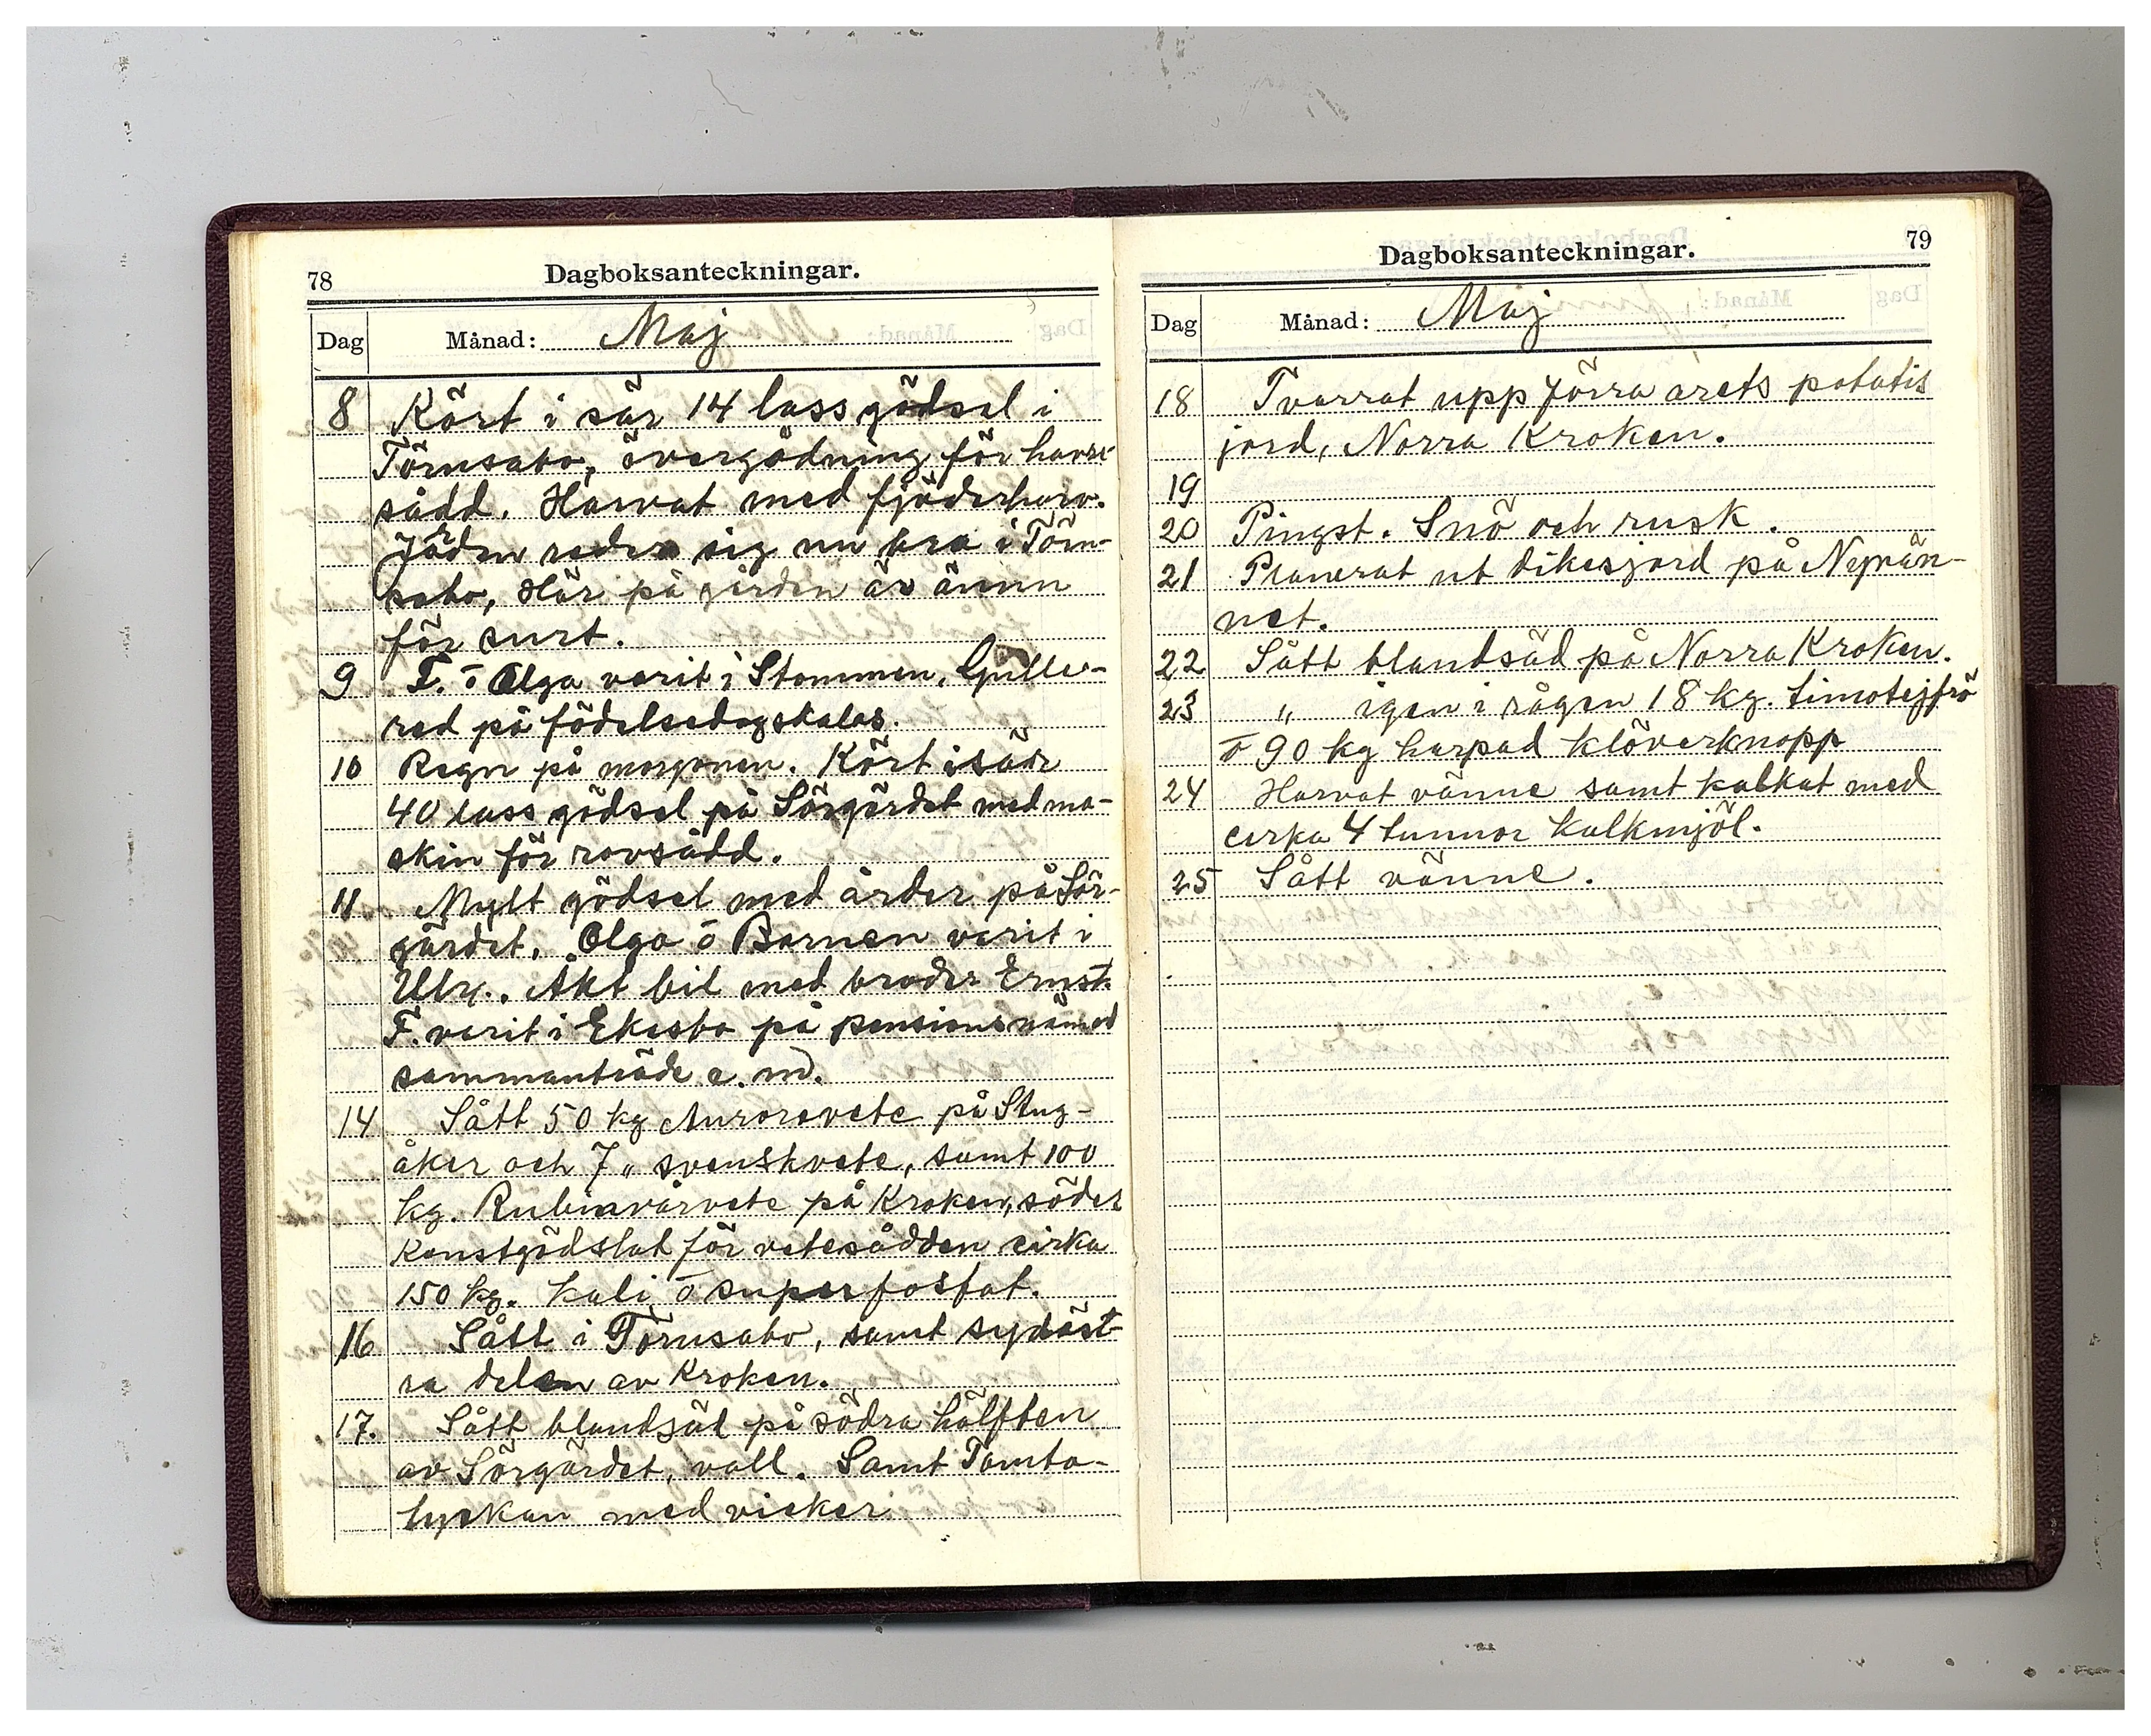 78 Dagboksanteckningar.
Dag Månad: Maj
8 Kört i sär 14 lass gödsel i
Törnsabo, övergödning för havre-
sådd. Harvat med fjäderharv.
Jöden reder sig nu bra i Törn-
sabo, Här på gården är ännu
för surt.
9 F. o Olga varit i Stommen, Gulle-
red på födelsedagskalas.
10 Regn på morgonen. Kört isär
40 lass gödsel på Sörgärdet med ma-
skin för rovsådd.
11 Mylt gödsel med årder på Sör-
gärdet. Olga o Barnen varit i
Ulr.. Åkt bil med broder Ernst.
F. varit i Ekesbo på pensionsnämnd
sammanträde e.m.
14 Sått 50 kg Auroravete på Stug-
åker och 7 „ svenskvete, samt 100
kg. Rubinvårvete på Kroken, söder
Konstgödslat för vetesådden cirka
150 kg. kali o superfosfat.
16 Sått i Törnsabo, samt sydöst-
ra delen av Kroken.
17. Sått blandsäd på södra hälften
av Sörgärdet, vall. Samt Tomta-
lyckan med vicker
79
Dagboksanteckningar.
Dag Månad: Maj
18 Tvarrat upp förra årets potatis
jord, Norra Kroken.
19
20 Pingst. Snö och rusk.
21 Planerat ut dikesjord på Nyvän-
net.
22 Sått blandsäd på Norra Kroken.
23 „ igen i rågen 18 kg. timotejfrö
o 90 kg harpad klöverknopp
24 Harvat vänne samt kalkat med
cirka 4 tunnor kalkmjöl.
25 Sått vänne.